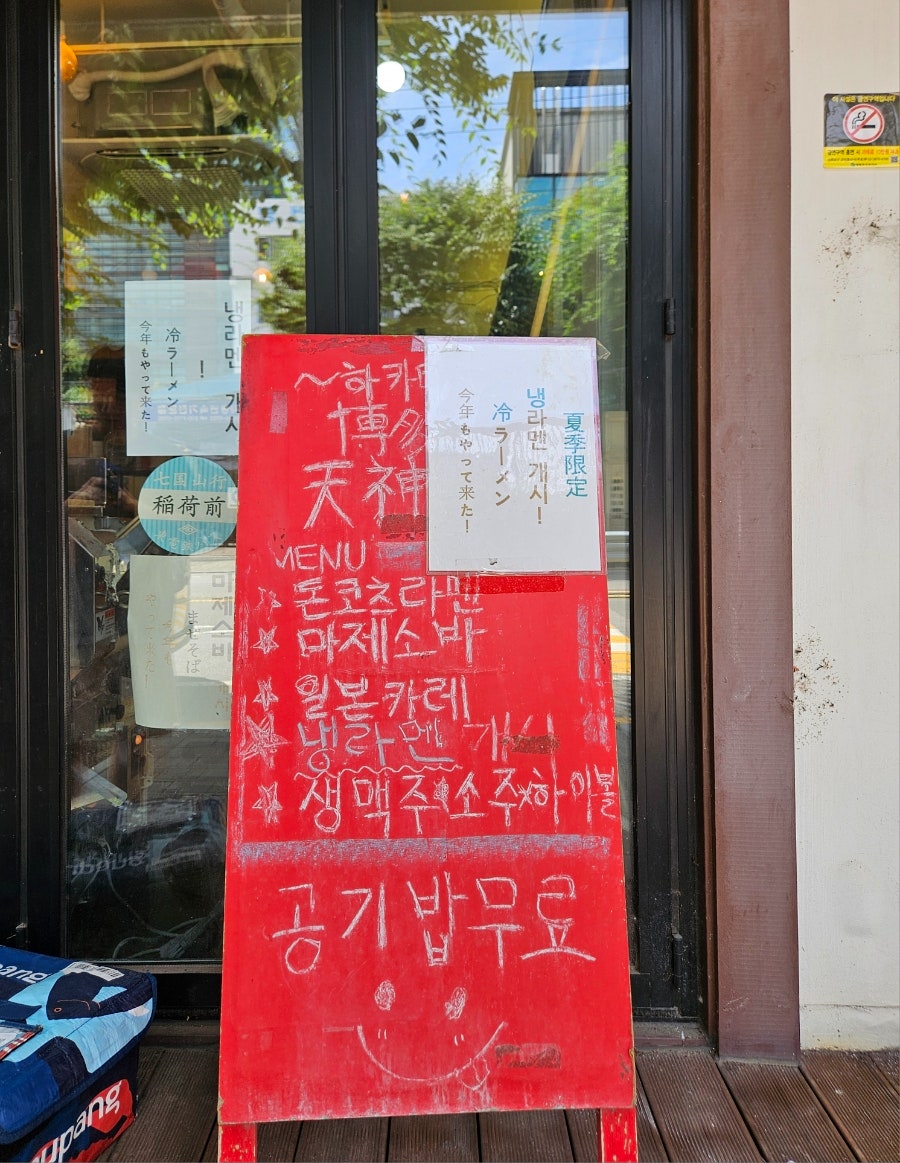 ~하카
博多
天神
MENU
돈코츠라멘
마제소바
일본카레
냉라멘 개시
생맥주*소주*하이볼
공기밥무료
夏季限定
냉라멘 개시!
冷ラーメン
今年もやって来た!
냉라멘 개시
!
冷ラーメン
今年もやって来た!
七国山行
稲荷前
마제소바
まぜそば
やって来た!
이 시설은 금연구역입니다
coupang